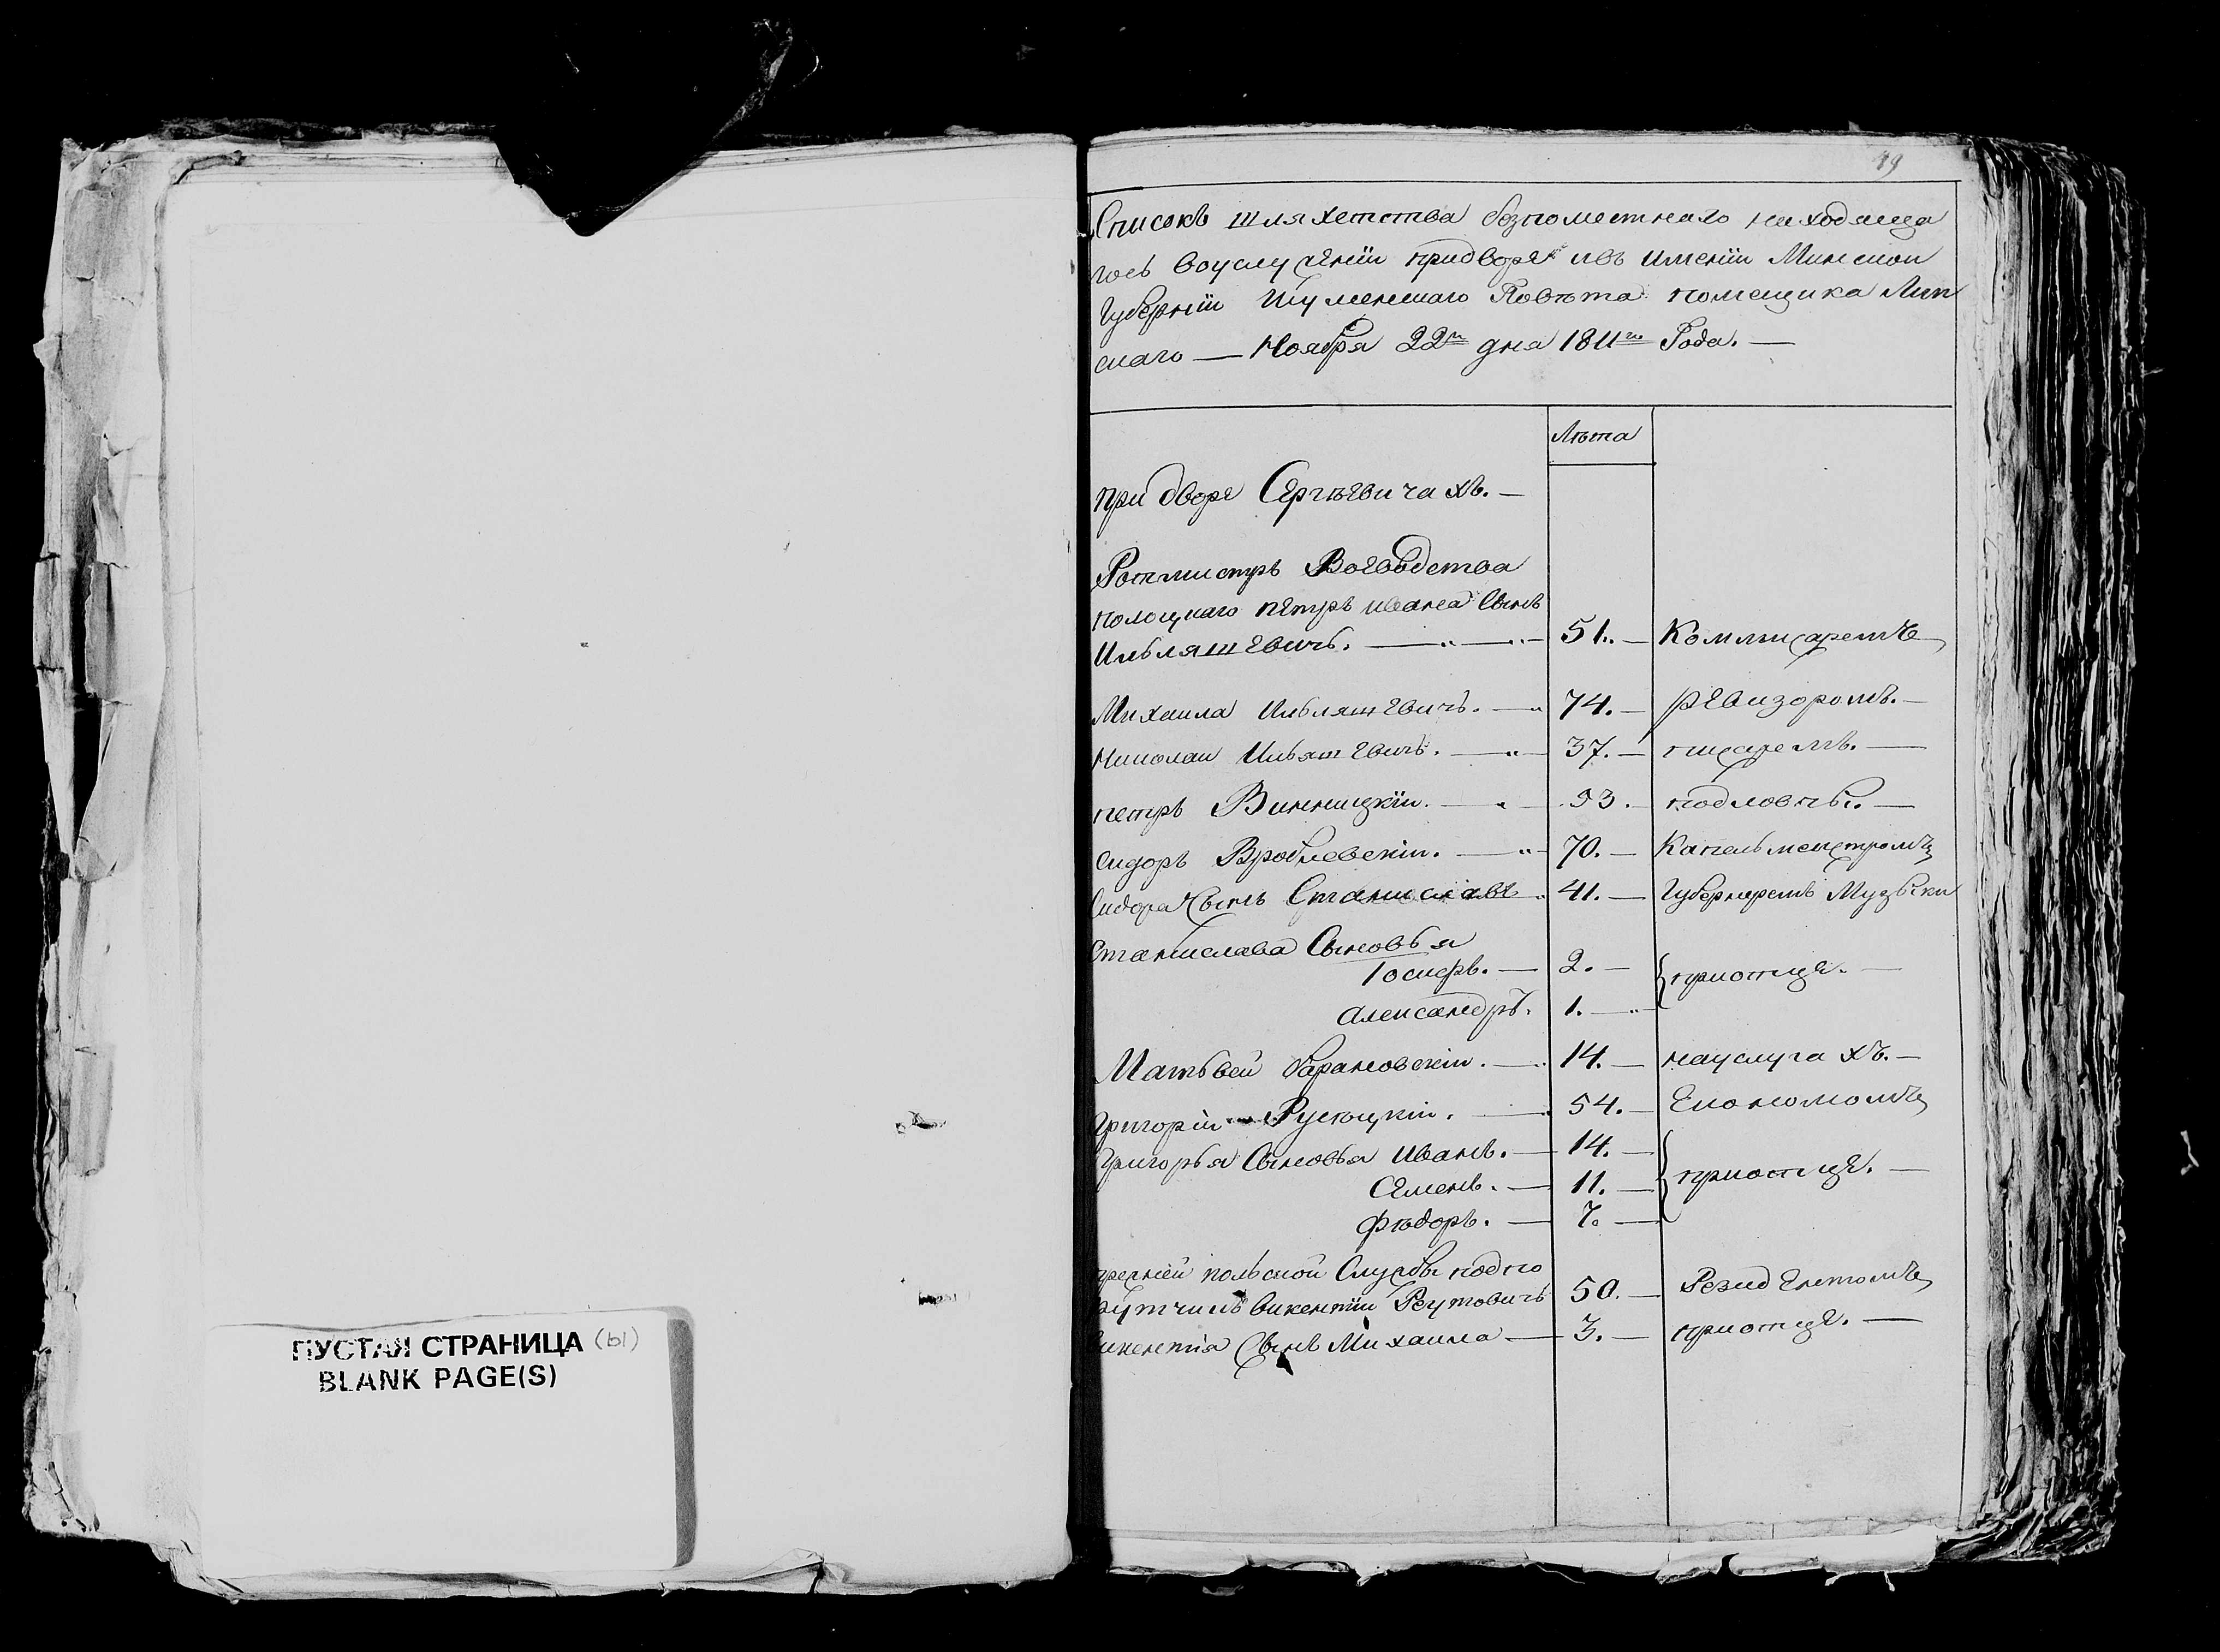 ПУСТАЯ СТРАНИЦА (ы)
BLANK PAGE(S)
Списокъ шляхетства безпоместнаго находяща
гось воуслуженіи придворе ивъ именіи Минской
Губерніи Игуменскаго Повѣта помещика Лип
скаго — Ноября 22го дня 1811го Года. —
Лѣта
при дворе Сергѣевичахъ. —
Ротмистръ Воеводства
полоцкаго петръ ивана Сынъ
Ильяшевичъ. — 51. — Коммисаремъ
Михаила Ильяшевичъ. — 74. — ревизоромъ. —
Николай Ильяшевичъ. — 37. — писаремъ. —
петръ Винницкій. — 53. — подловчы. —
сидоръ Врублевскій. — 70. — Капельмейстромъ
Сидора Сынъ Станиславъ 41. — Губернеремъ Музыки
Станислава Сыновья
Іосифъ. — 2. —
приотце. —
Александръ. 1. —
Матьвей Барановскій. — 14. — науслугахъ. —
Григорій Рускоцкій. 54. — Економомъ
Григорья Сыновья Иванъ. — 14. —
Семенъ. — 11. — приотце. —
Фѣдоръ. — 7. —
прежней польской Службы подпо
ручикъ Викентій Реутовичъ 50. — Резидентомъ
Викентія Сынъ Михаила — 3. — приотце. —